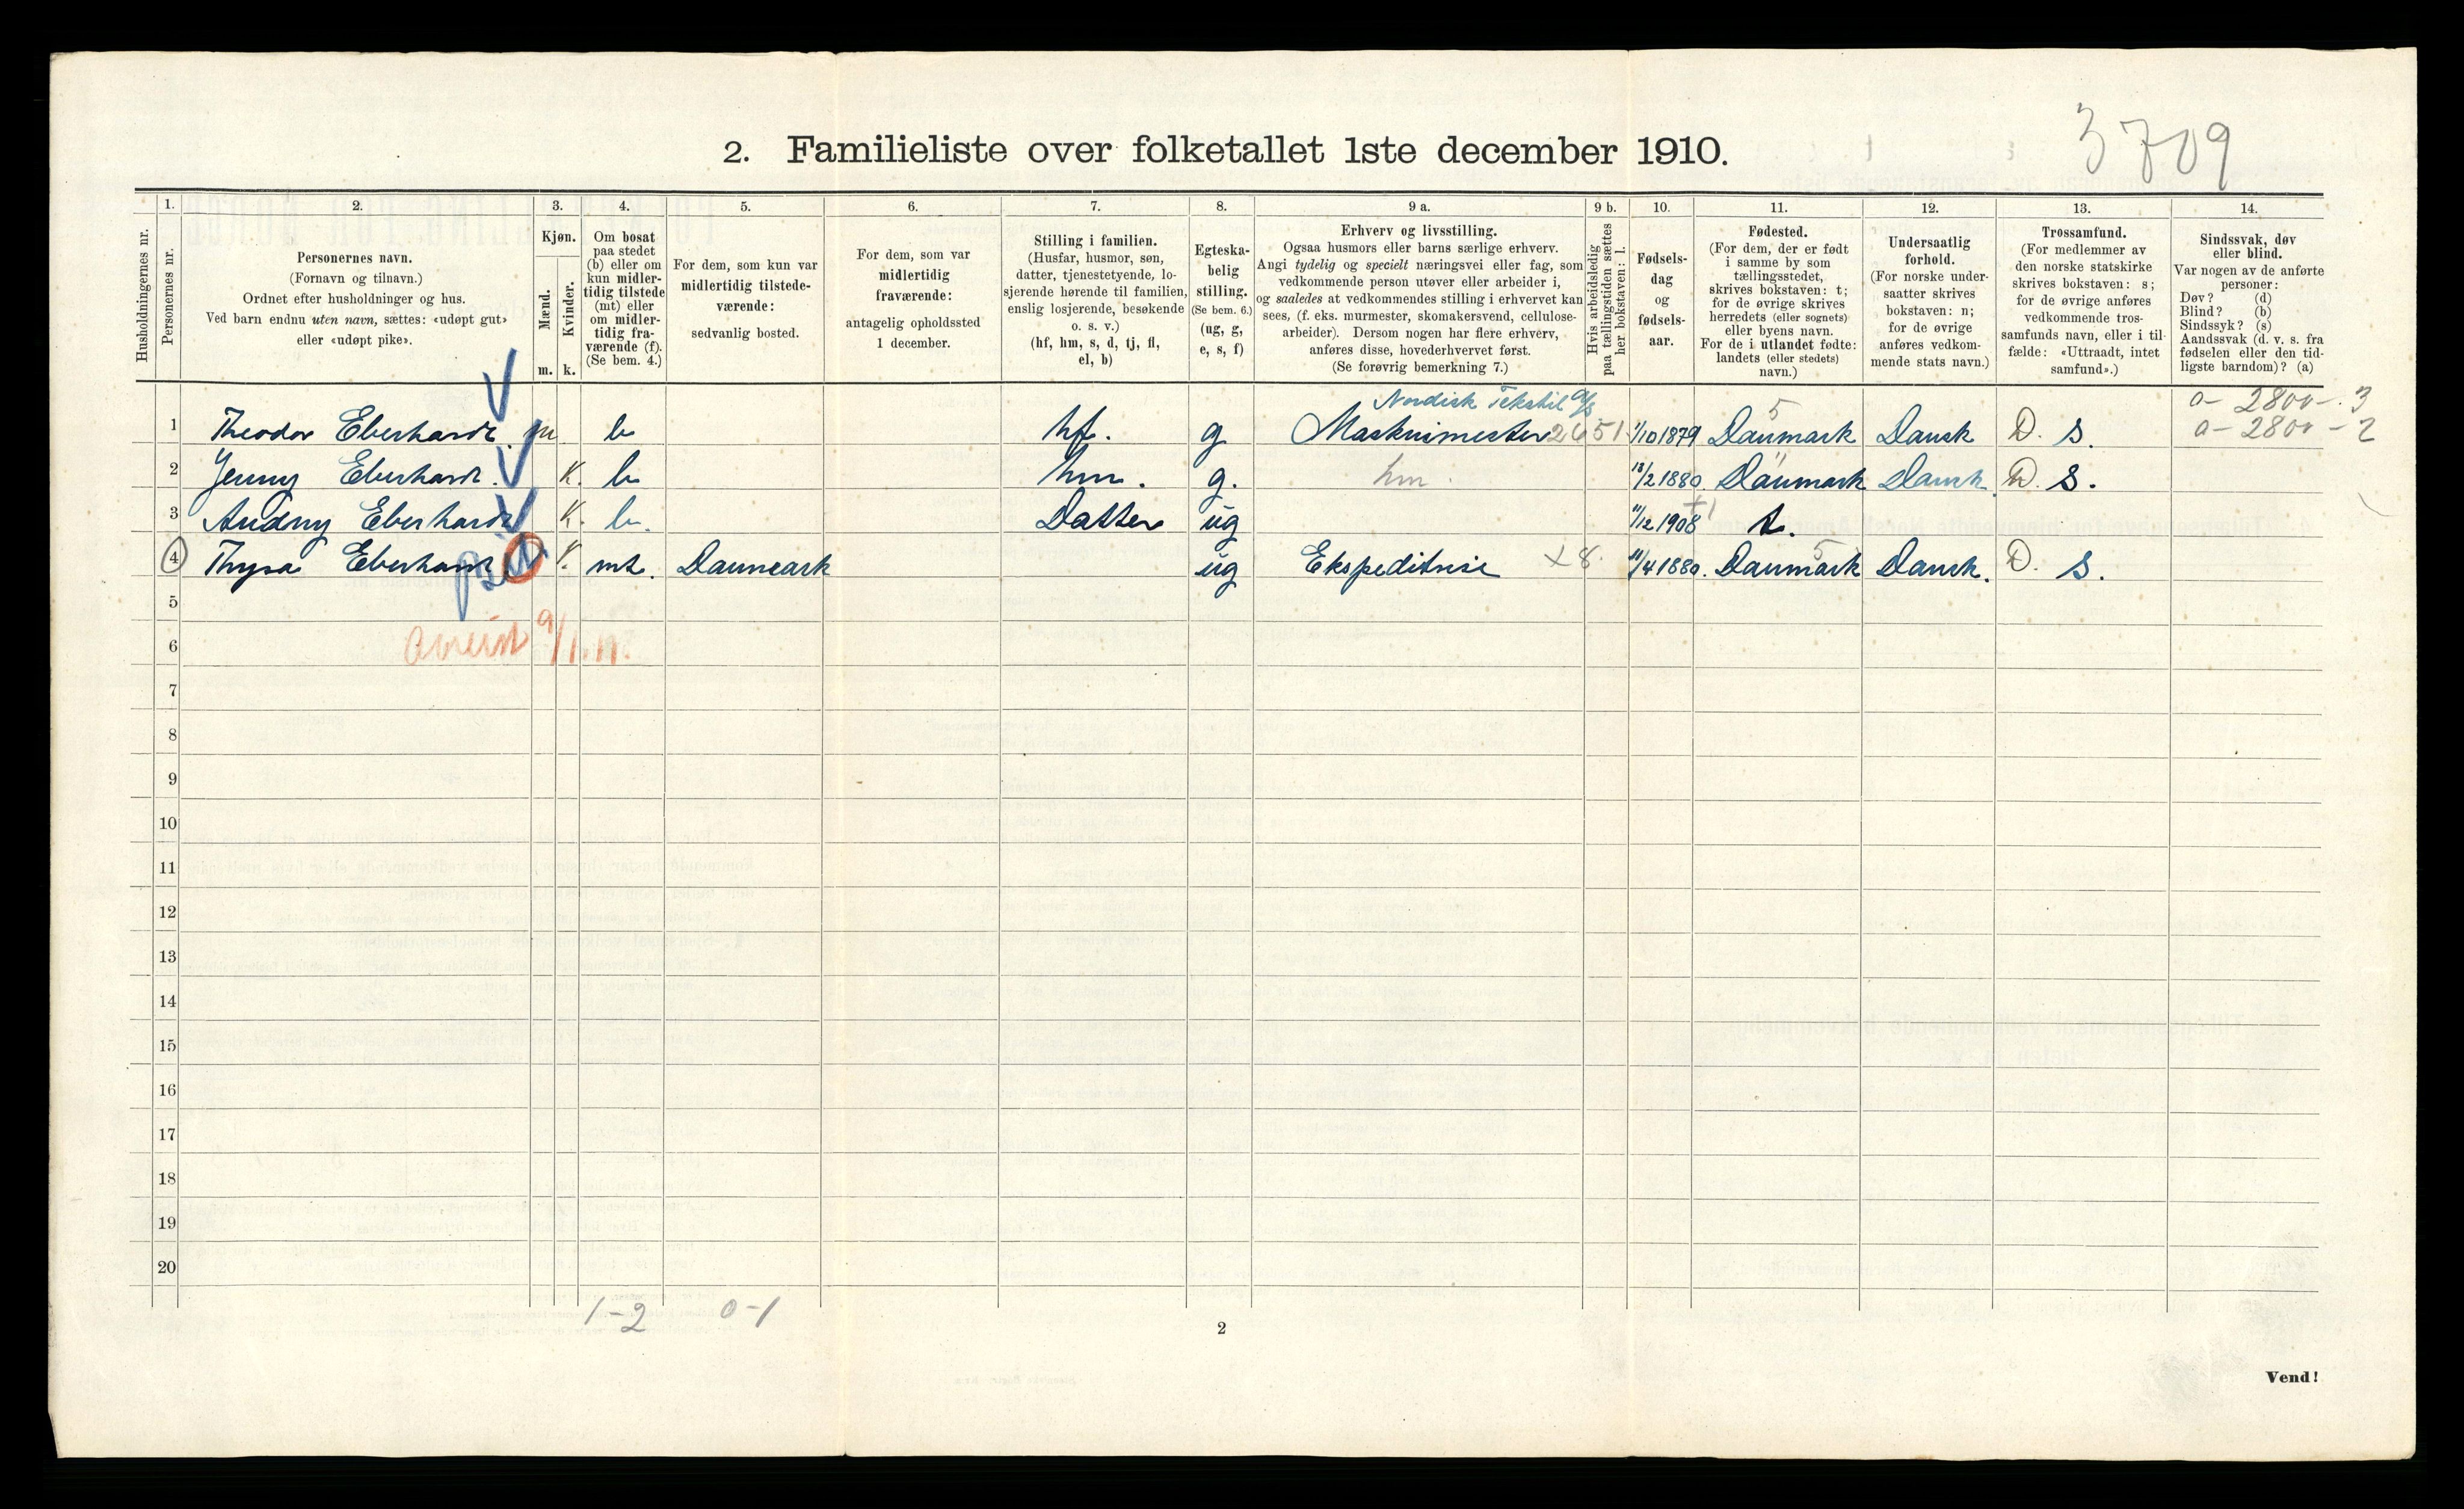 3709
2. Familieliste over folketallet 1ste december 1910.
1. 2. 3. 4. 5. 6. 7. 8. 9 a. 9 b. 10. 11. 12. 13. 14.
Husholdningernes nr.
Personernes nr.
Personernes navn.
(Fornavn og tilnavn.)
Ordnet efter husholdninger og hus.
Ved barn endnu uten navn, sættes: «udøpt gut»
eller «udøpt pike».
Kjøn.
Mænd.
Kvinder.
m. k.
Om bosat
paa stedet
(b) eller om
kun midler-
tidig tilstede
(mt) eller
om midler-
tidig fra-
værende (f).
(Se bem. 4.)
For dem, som kun var
midlertidig tilstede-
værende:
sedvanlig bosted.
For dem, som var
midlertidig
fraværende:
antagelig opholdssted
1 december.
Stilling i familien.
(Husfar, husmor, søn,
datter, tjenestetyende, lo-
sjerende hørende til familien,
enslig losjerende, besøkende
o. s. v.)
(hf, hm, s, d, tj, fl,
el, b)
Egteska-
belig
stilling.
(Se bem. 6.)
(ug, g,
e, s, f)
Erhverv og livsstilling.
Ogsaa husmors eller barns særlige erhverv.
Angi tydelig og specielt næringsvei eller fag, som
vedkommende person utøver eller arbeider i,
og saaledes at vedkommendes stilling i erhvervet kan
sees, (f. eks. murmester, skomakersvend, cellulose-
arbeider). Dersom nogen har flere erhverv,
anføres disse, hovederhvervet først.
(Se forøvrig bemerkning 7.)
Hvis arbeidsledig
paa tællingstiden sættes
her bokstaven: l.
Fødsels-
dag
og
fødsels-
aar.
Fødested.
(For dem, der er født
i samme by som
tællingsstedet,
skrives bokstaven: t;
for de øvrige skrives
herredets (eller sognets)
eller byens navn.
For de i utlandet fødte:
landets (eller stedets)
navn.)
Undersaatlig
forhold.
(For norske under-
saatter skrives
bokstaven: n;
for de øvrige
anføres vedkom-
mende stats navn.)
Trossamfund.
(For medlemmer av
den norske statskirke
skrives bokstaven: s;
for de øvrige anføres
vedkommende tros-
samfunds navn, eller i til-
fælde: «Uttraadt, intet
samfund».)
Sindssvak, døv
eller blind.
Var nogen av de anførte
personer:
Døv? (d)
Blind? (b)
Sindssyk? (s)
Aandssvak (d. v. s. fra
fødselen eller den tid-
ligste barndom)? (a)
Nordisk Tekstil a/s 5 a- 2800-. 3
1 Theodor Eberhardt. m b hf. g Maskinmester 2651 1/10 1879 Danmark Dansk D. s. a- 2800 - 2
2 Jenny Eberhardt. K. b hm. g. hm. 18/2 1880. Danmark Dansk. D. s.
3 Audny Eberhardt K. b. Datter ug 11/12 1908 +1 t.
4 Thyra Eberhardt K. mt. Danmark ug Ekspeditrise ×8. 11/4 1880. 5 Danmark Dansk. D. s.
5
6 avreist 9/1. 11.
7
8
9
10
11
12
13
14
15
16
17
18
19
20
1-2 0-1
2
Vend!